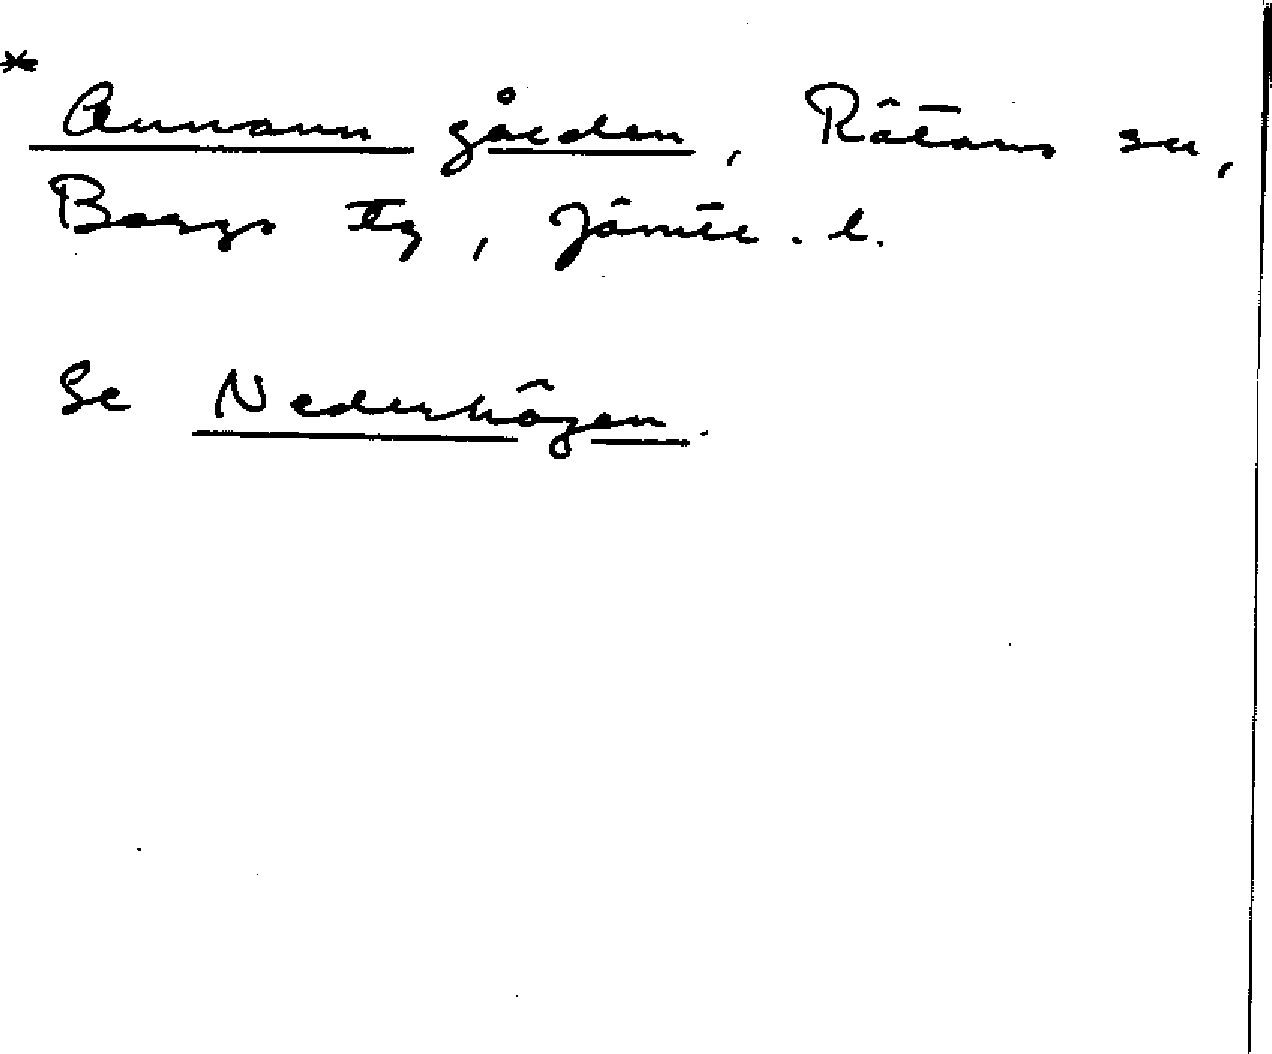 * Aunann gården, Rätans sn,
Bergs tg, Jämtl. l.
Se Nederhögen.